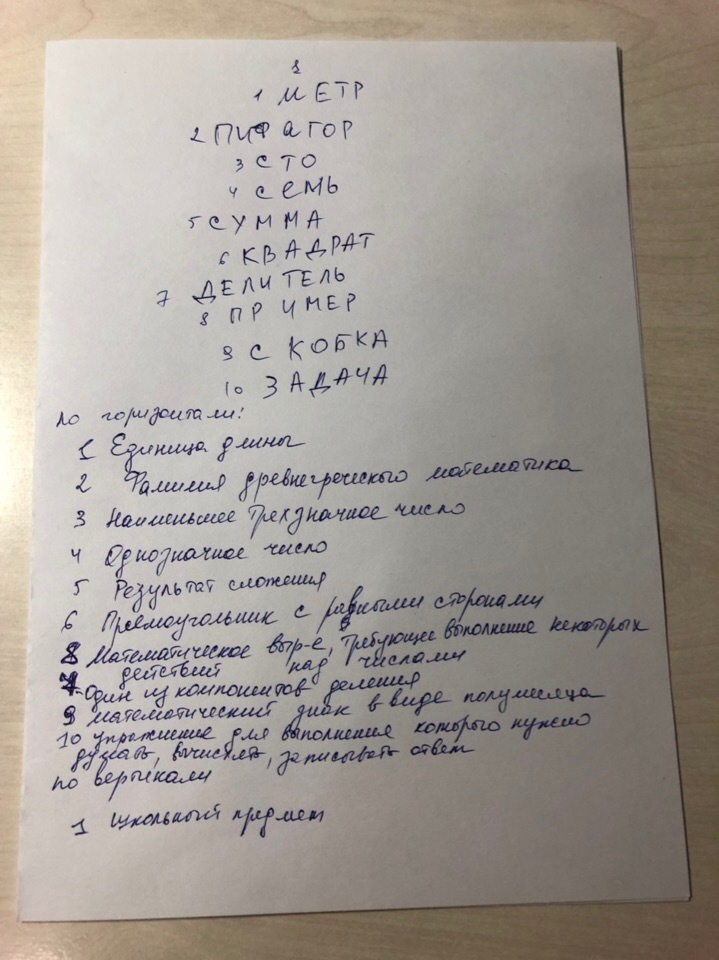 1
1 МЕТР
2 ПИФАГОР
3 СТО
4 СЕМЬ
5 СУММА
6 КВАДРАТ
7 ДЕЛИТЕЛЬ
8 ПРИМЕР
9 СКОБКА
10 ЗАДАЧА
по горизонтали:
1 Единица длины
2 Фамилия древнегреческого математика
3 Наименьшее трехзначное число
4 Однозначное число
5 Результат сложения
6 Прямоугольник с равными сторонами
8 Математическое выр-е, требующее выполнение некоторых
действий над числами
7 Один из компонентов деления
9 математический знак в виде полумесяца
10 упражнение для выполнения которого нужно
думать, вычислять, записывать ответ
по вертикали
1 школьный предмет